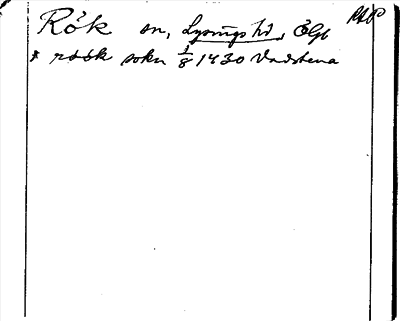 Rök sn, Lysings hd, Ögl RAP
* röök sokn 1/8 1430 Vadstena